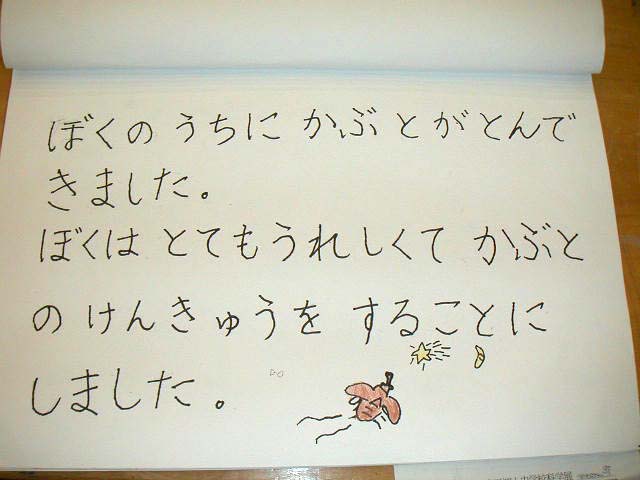 ぼくの うちに かぶとがとんで
きました。
ぼくは とてもうれしくて かぶと
の けんきゅうを することに
しました。